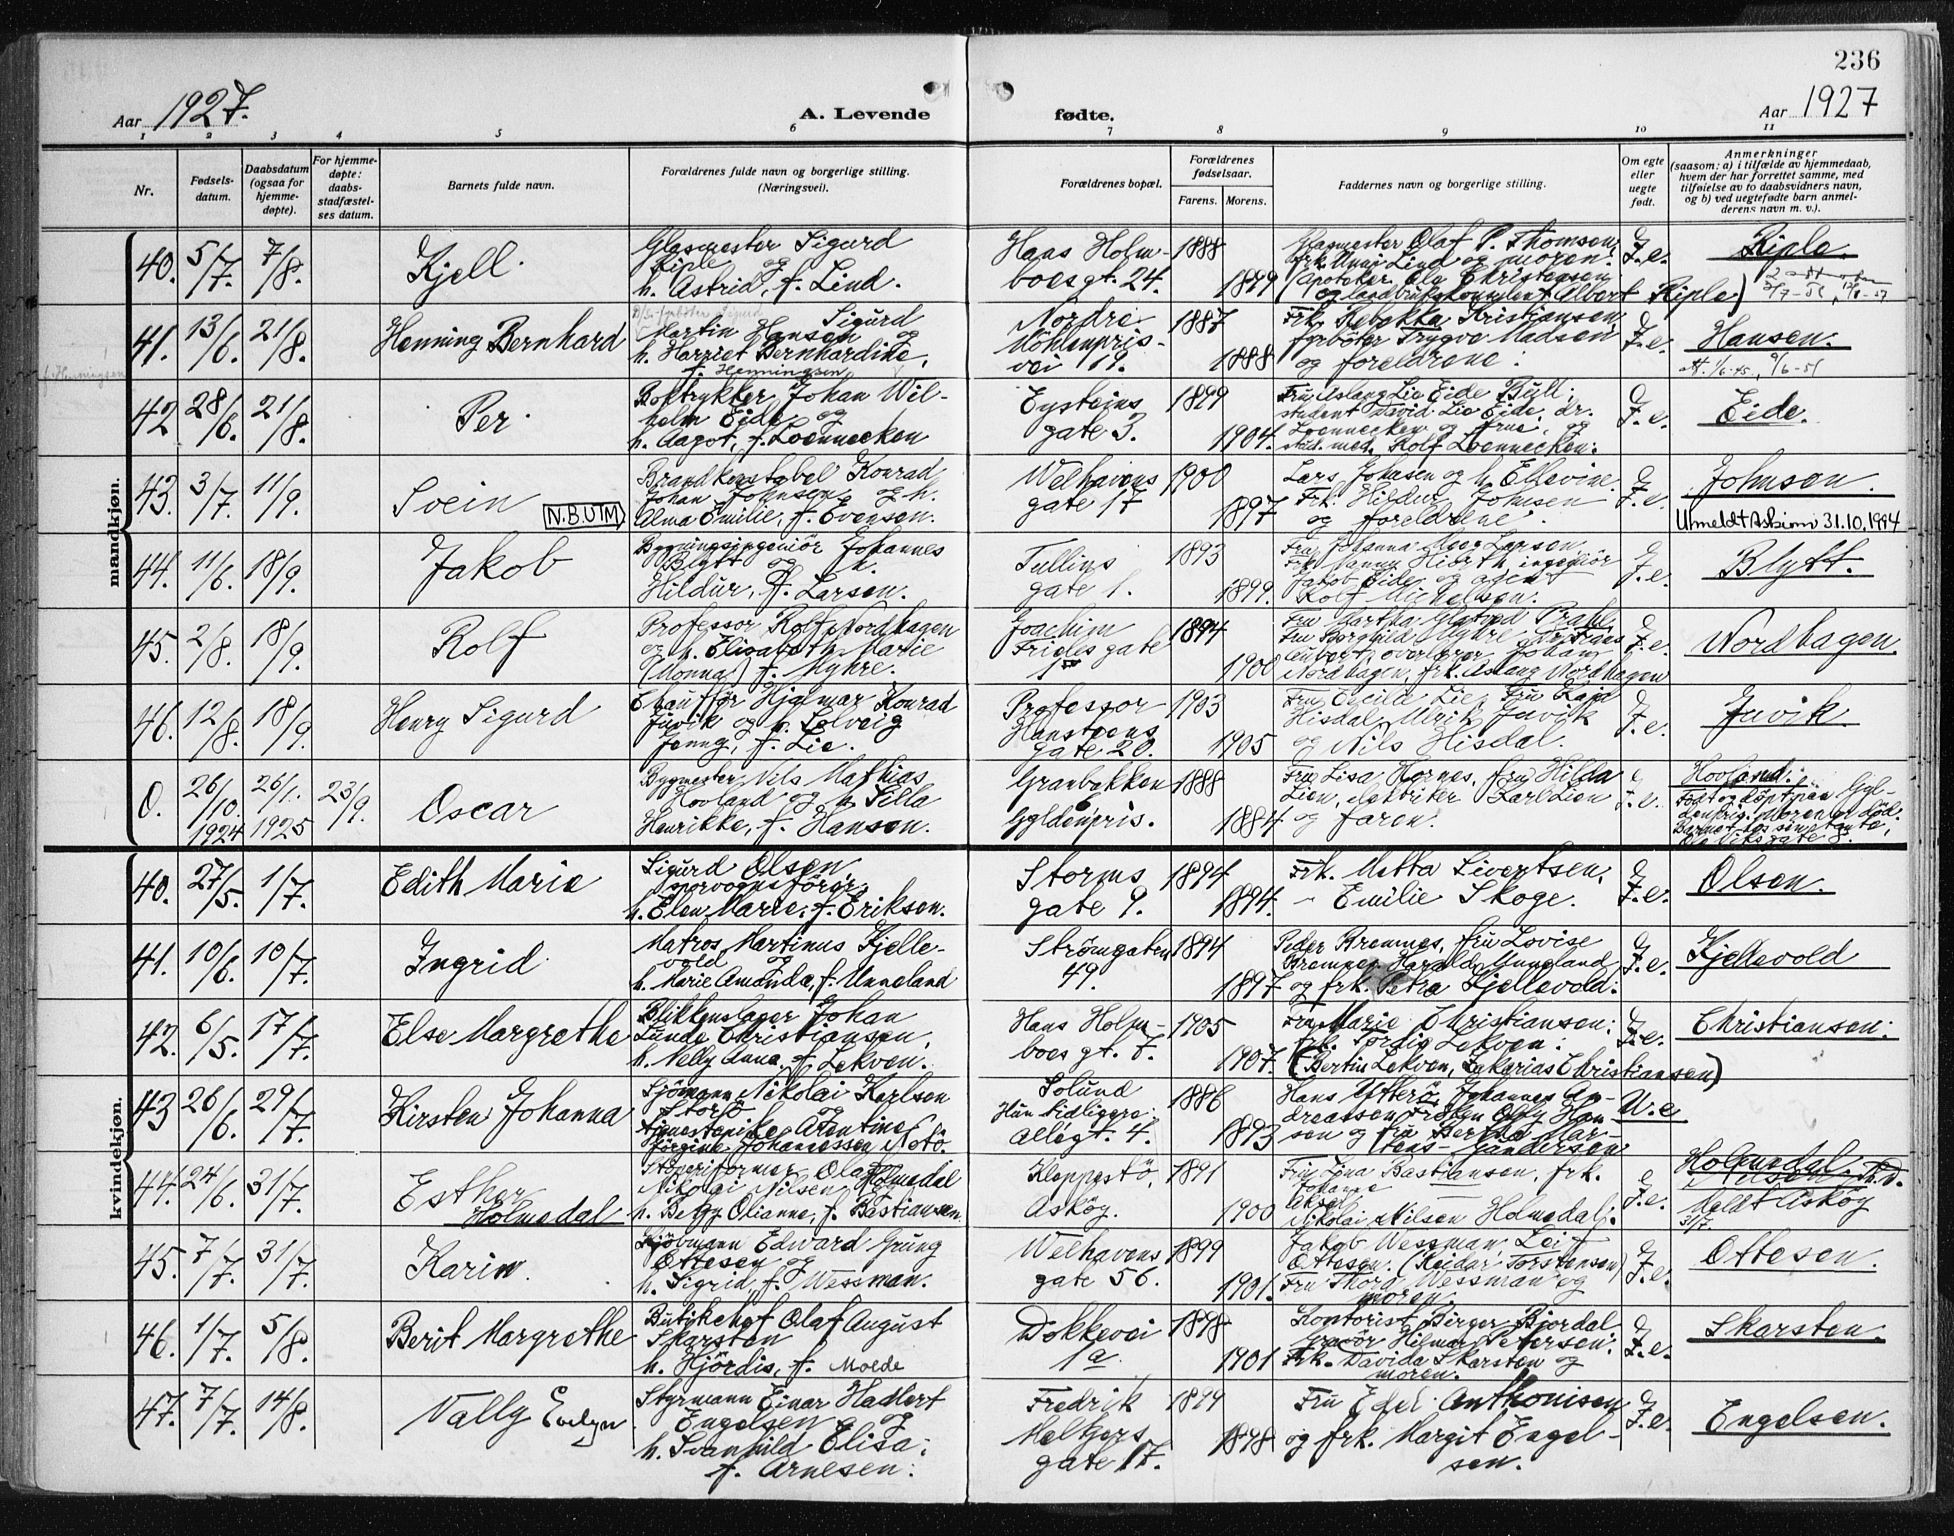 236
Aar 1927.
A. Levende
fødte.
Aar 1927
1 2 3 4 5 6 7 8 9 10 11
Nr.
Fødsels-
datum.
Daabsdatum
(ogsaa for
hjemme-
døpte).
For hjemme-
døpte:
daabs-
stadfæstel-
ses datum.
Barnets fulde navn.
Forældrenes fulde navn og borgerlige stilling.
(Næringsvei).
Forældrenes bopæl.
Forældrenes
fødselsaar.
Farens. Morens.
Faddernes navn og borgerlige stilling.
Om egte
eller
uegte
født.
Anmerkninger
(saasom: a) i tilfælde av hjemmedaab,
hvem der har forrettet samme, med
tilføielse av to daabsvidners navn,
og b) ved uegtefødte barn anmel-
derens navn m. v.).
mandkjøn.
40. 5/7. 7/8. Kjell.
Glasmester Sigurd
Riple og
h. Astrid, f. Lind.
Hans Holm-
boesgt. 24.
1888
1899
Glasmester Olaf P. Thomsen,
frk. Lind og moren.
(Apoteker Christensen
og landbrukskonsulent Albert Riple)
F. e.
Riple.
41. 13/6. 21/8. Henning Bernhard
Sigurd
Martin Hansen og
h. Harriet Bernhardine,
f. Henningsen
Nordre
Möhlenpris-
vei 19.
1887
1888
Frk. Rebekka Kristiansen,
fyrböter Trygve Madsen
og foreldrene.
F. e.
Hansen.
42 28/6. 21/8. Per.
Boktrykker Johan Wil-
helm Eide og
h. Aagot, f. Loennecken
Eysteins
gate 3.
1899
1904.
Fru Aslaug Lie Eide Bull,
student David Lie Eide, dr.
Loennecken og frue, og
stud. med. Rolf Loennecken.
F. e.
Eide.
43. 3/7. 11/9. Svein N.B. UTM
Brandkonstabel Konrad
Johan Johnsen og h.
Alma Emilie, f. Evensen.
Welhavens
gate 17
1900
1897
Lars Johnsen og h. Ellevine
Frk. Hildur Johnsen
og foreldrene.
F. e.
Johnsen.
Utmeldt Askim 31.10.1994
44. 11/6. 18/9. Jakob
Bygningsingeniör Johannes
Blytt og h.
Hildur, f. Larsen.
Tullins
gate 1.
1893
1899.
Fru Johanna Meer Larsen
Frk. Nanna Hiorth, ingeniör
Jacob Eide og agent
Rolf Michelsen.
F. e.
Blytt.
45. 2/8. 18/9. Rolf
Professor Rolf Nordhagen
og h. Elisabeth Marie
(Monna) f. Myhre.
Joachim
Frieles gate
1
1894
1900
Fru Borghild Myhre
overlærer Johan
Nordhagen, frk. Aslaug Nordhagen
F. e.
Nordhagen.
46. 12/8. 18/9. Henry Sigurd
Chauffør Hjalmar Konrad
Juvik og h. Solveig
Jenny, f. Lie.
Professor
Hansteens
gate 20.
1903
1905
Fru Cecilie Lie, Fru Kaja
Hisdal, Ulrik Juvik
og Nils Hisdal.
F. e.
Juvik.
0. 26/10. 1924 26/1. 1925 23/9. Oscar
Bygmester Nils Mathias
Hovland og h. Silla
Henrikke, f. Hansen.
Granbakken
Gyldenpris.
1888
1884
Fru Lisa Hornes, fru Hilda
Lien, elektriker Karl Lien
og faren.
F. e.
Hovland.
kvindekjøn.
40. 27/5. 1/7. Edith Marie
Sigurd Olsen,
sporvognsförer,
h. Elen Marie, f. Eriksen.
Storms
gate 9.
1894
1894.
Frk. Metta Sivertsen,
" Emilie Skoge.
F. e.
Olsen.
41. 10/6. 10/7. Ingrid
Matros Martinus Kjelle-
vold og
h. Marie Amanda, f. Unneland
Strömgaten
49.
1894
1897.
Peder Bremnes, fru Lovise
Bremnes, Harald Unneland
og frk. Petra Kjellevold.
F. e.
Kjellevold
42. 6/5. 17/7. Else Margrethe
Blikkenslager Johan
Lunde Christiansen,
h. Nelly Anna, f. Lekven.
Hans Holm-
boes gt. 7.
1905
1907.
Fru Marie Christiansen.
frk. Tordis Lekven.
(Bertin Lekven, Zakarias Christiansen)
F. e.
Christiansen.
43 26/6. 29/7. Kirsten Johanna
Sjömann Nikolai Karlsen
og
Tjenestepike Argentine
Jörgine Johannessen Notö.
Solund
Hun tidligere:
Allégt. 4.
1886
1893
Hans Ytterö, Johannes An-
dreassen, Fröken Olly Han-
sen og fru Bertha Mar-
tens-Gundersen
U. e.
44. 24/6. 31/7. Esther
Holmedal
Støperiformer Olaf
Nikolai Nilsen Holmedal
h. Betzy Olianna, f. Bastiansen.
Kleppestö,
Asköy.
1891
1900
Fru Lena Bastiansen, frk.
Johanne
Aksel
Nikolai Nilsen Holmedal.
F. e.
Holmedal
Nilsen
Meldt Asköy
31/7
45. 7/7. 31/7. Karin.
Kjøbmann Edward Grung
Ottesen og
h. Sigrid, f. Wessman.
Welhavens
gate 56.
1899
1901.
Jakob Wessman, Leif
Ottesen. (Reidar Torstensen)
Fru Thora Wessman og
moren.
F. e.
Ottesen.
46. 1/7. 5/8. Berit Margrethe
Butikchef Olaf August
Skarsten
h. Hjördis, f. Molde
Dokkevei
1a.
1898
1901
Kontorist Birger Bjordal
gravör Hilmar Petersen.
Frk. Davida Skarsten og
moren.
F. e.
Skarsten.
47. 7/7. 14/8. Vally Evelyn
Styrmann Einar Hadlert
Engelsen og
h. Svanhild Elisa.
f. Arnesen.
Fredrik
Meltzers
gate 17.
1899
1898
Fru Edel Anthonisen
og frk. Margit Engel-
sen.
F. e.
Engelsen.